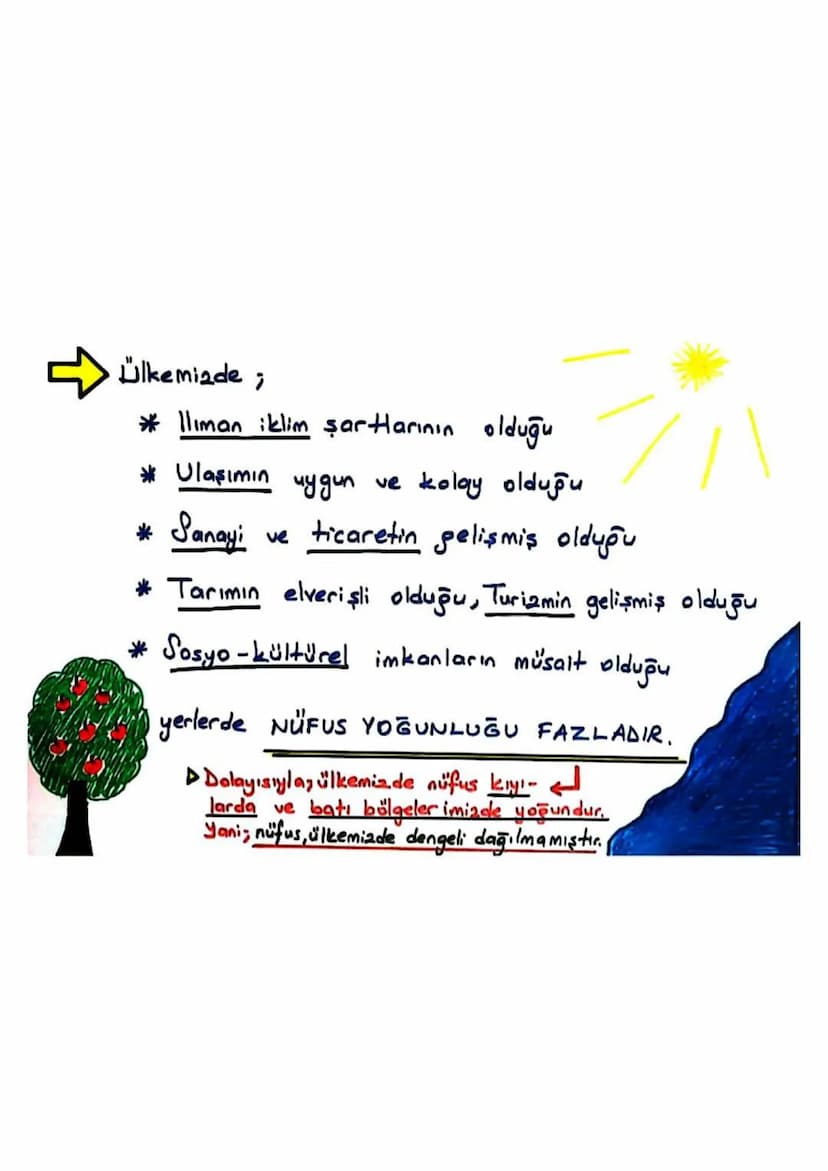 Ülkemizde ;
* Ilıman iklim şartlarının olduğu
* Ulaşımın uygun ve kolay olduğu
* Sanayi ve ticaretin gelişmiş olduğu
* Tarımın elverişli olduğu, Turizmin gelişmiş olduğu
* Sosyo-kültürel imkanların müsait olduğu
yerlerde NÜFUS YOĞUNLUĞU FAZLADIR.
Dolayısıyla; ülkemizde nüfus kıyı-
larda ve batı bölgelerimizde yoğundur.
Yani; nüfus, ülkemizde dengeli dağılmamıştır.